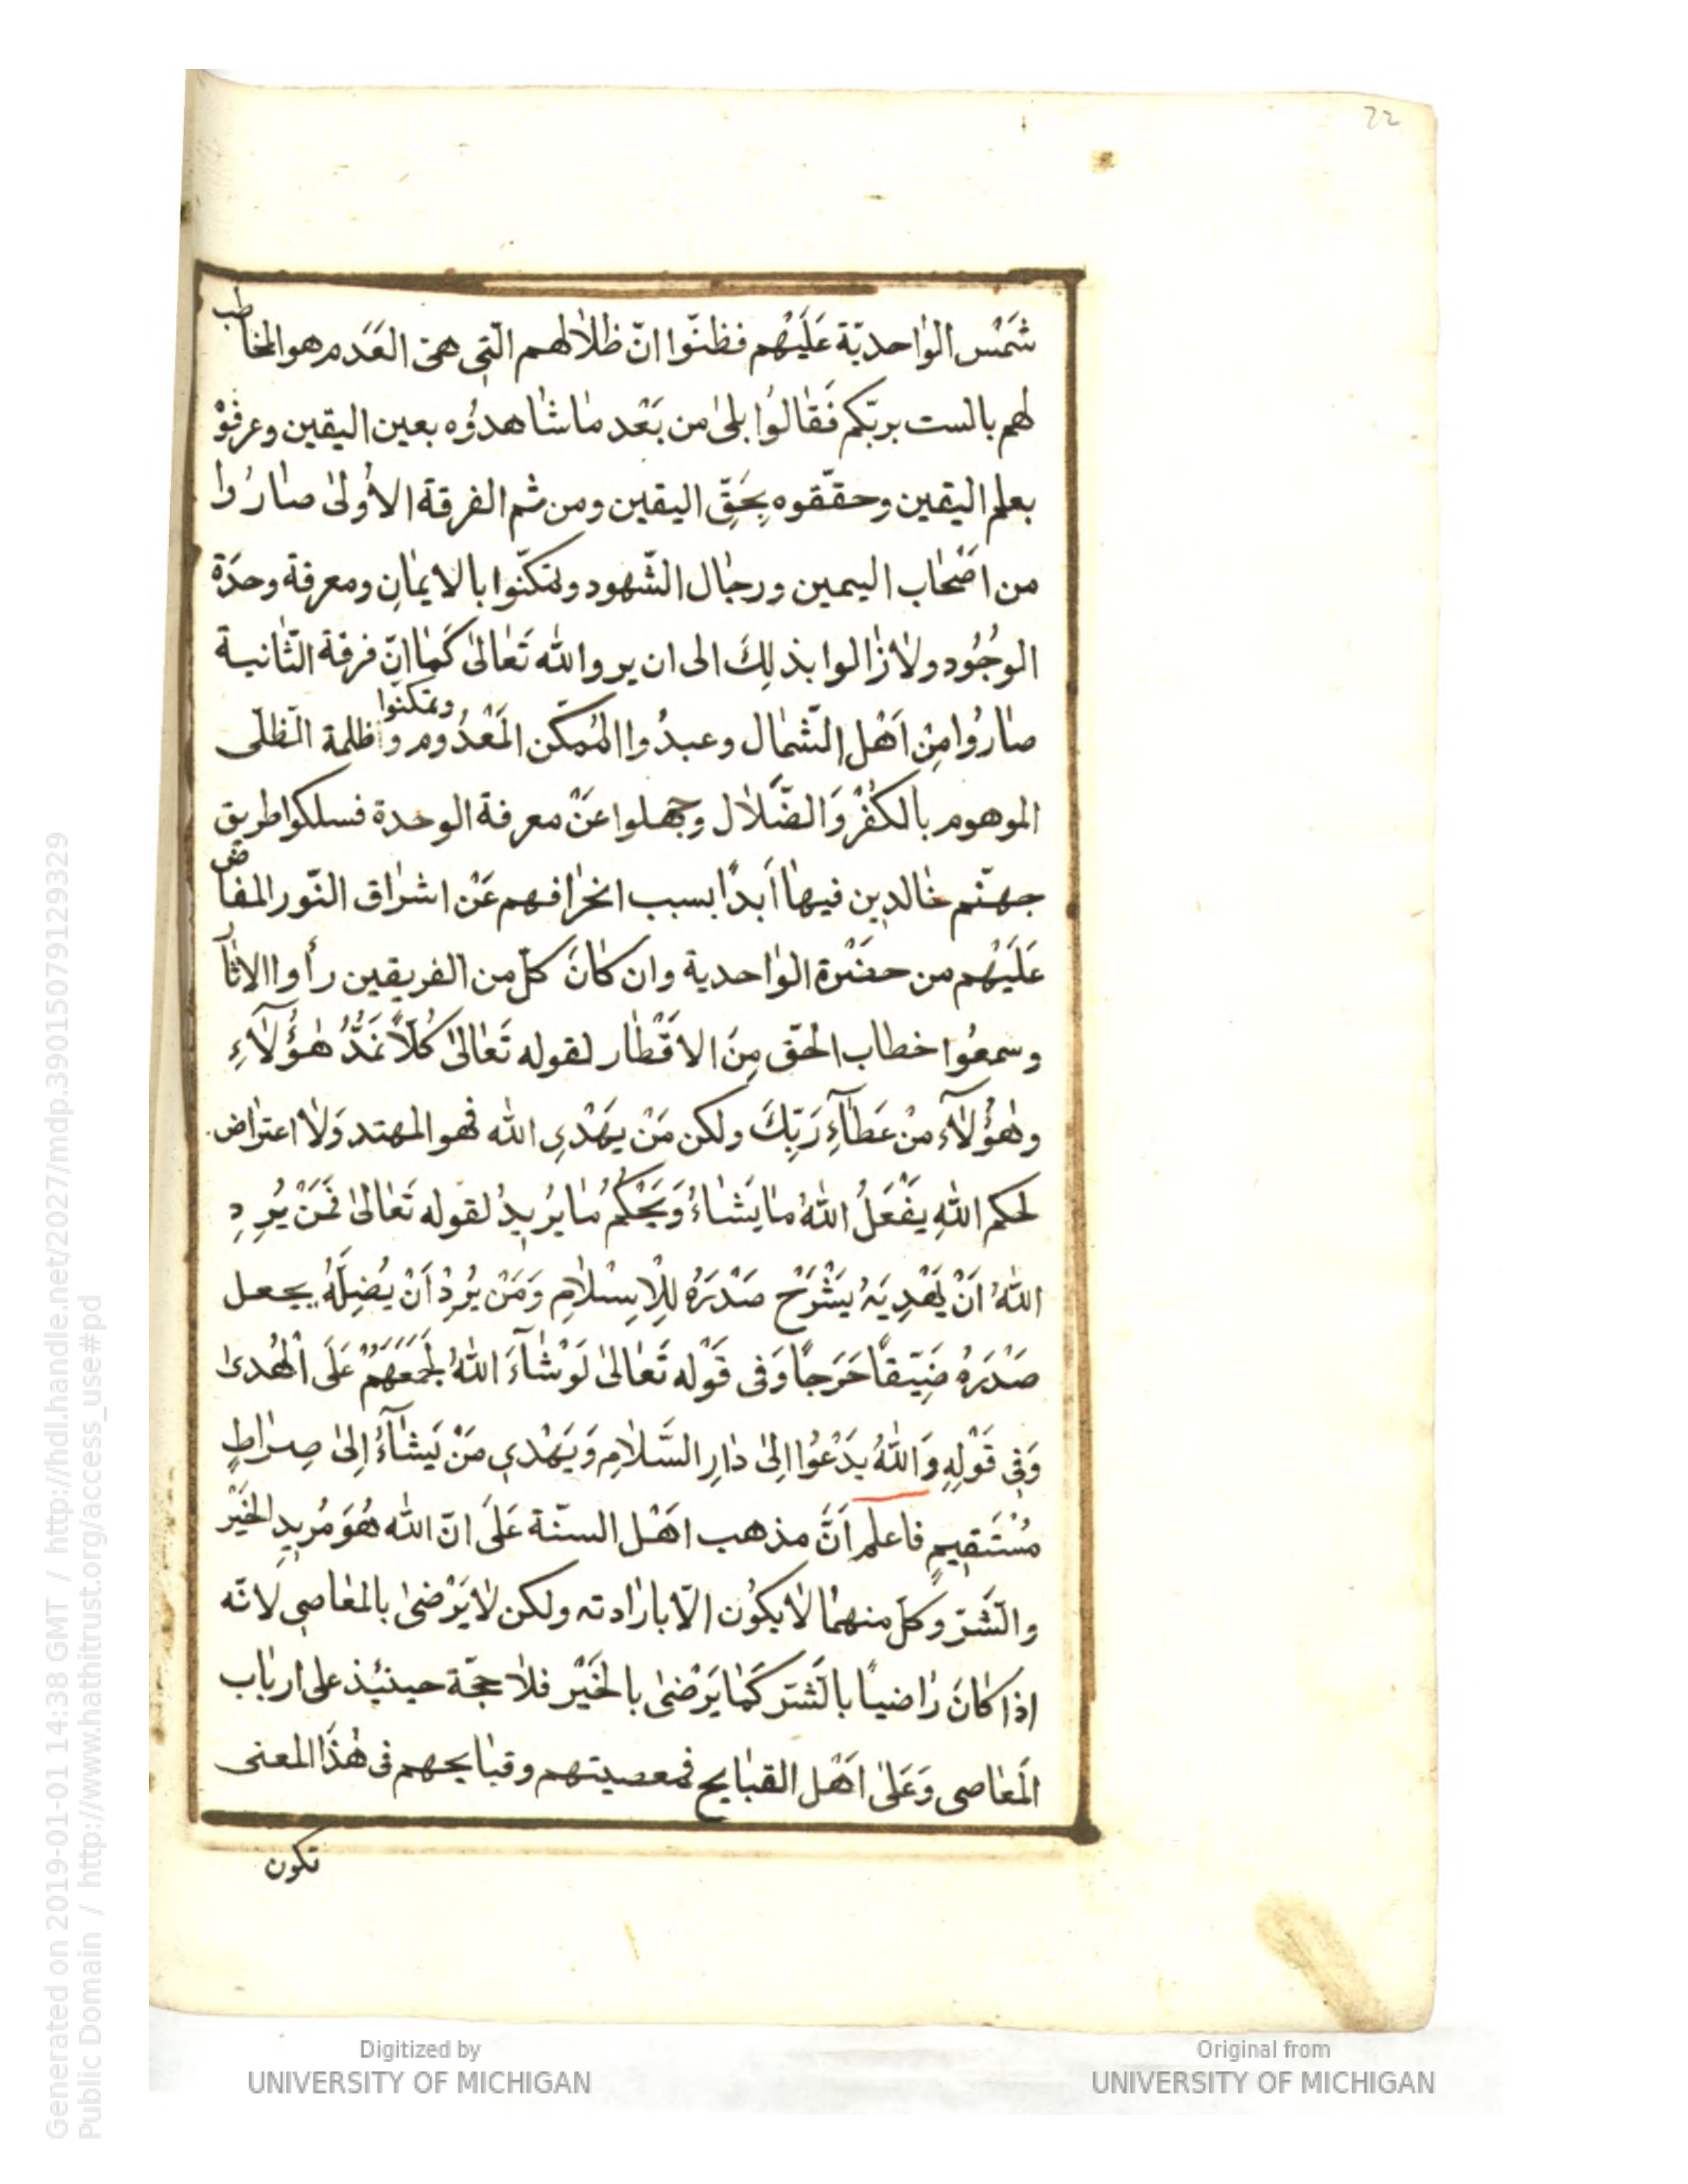 22
شَمْس الوٰاحديّة عَلَيْهم فظنّوا انّ ظلاٰلهم الّتى هىَ العَدَم هو المخاطب
لهم بالست بربّكم فَقٰالوُا بلىٰ من بَعْد مٰا شٰاهدوُه بعين اليقين وعرفوْ
بعلم اليقين وحقّقوه بِحَقِّ اليقين ومن ثم الفرقة الاوُلىٰ صٰارُوا
من اَصْحٰاب اليمين ورجٰال الشّهود وتمكّنوا بالايمٰانِ ومعرفة وحدَة
الوجُود ولاٰ زٰالوا بذلِكَ الى ان يروا الله تَعٰالىٰ كَمٰا انّ فرقة الثّانية
صٰارُوا مِنْ اَهْل الشّمٰال وعبدُوا المُمكن المَعْدُوم وتمكنّوا وٱظلمة الظّلّى
الموهوم بالكفْر وَالضّلاٰل وجهلوا عَنْ معرفة الوحدة فسلكوا طريق
جهنّم خٰالدِين فيهٰا اَبدًا بسبب انحرٰافهم عَنْ اشرٰاق النّور المفاض
عَلَيْهم من حضْرة الوٰاحدية وان كٰانَ كلّ من الفريقين رأوا الاثٰار
وسمعُوا خطاب الحقّ مِنَ الاقْطٰار لقوله تَعٰالىٰ كُلاًّ نمَدُّ هٰؤُلاٰۤءِ
وهٰؤُلاٰۤء مِنْ عَطٰآءِ رَبِّكَ ولكن مَنْ يهْدِى الله فهو المهتد وَلاٰ اعترٰاض
لحكم اللهِ يَفْعَلُ اللهُ مٰا يَشٰاءُ وَيَحْكُمُ مٰا يُريدُ لقوله تَعٰالىٰ فَمَنْ يُرِدِ
اللهُ اَنْ يَهْدِيَهُ يَشْرَحْ صَدْرَهُ لِلْاِسْلاٰمِ وَمَنْ يُرِدْ اَنْ يُضِلَّهُ يجعل
صَدْرَهُ ضَيِّقاً حَرَجاً وَفى قَوْله تَعٰالىٰ لَوْ شٰآءَ اللهُ لَجَمَعَهُمْ عَلَى الْهُدىٰ
وَفى قَوْلِهِ وَاللهُ يَدْعُوا اِلىٰ دٰارِ السَّلاٰمِ وَيَهْدِى مَنْ يَشٰآءُ اِلىٰ صِرٰاطٍ
مُسْتَقِيمٍ فاعلم اَنَّ مذهب اهْل السنّة عَلىَ انّ الله هُوَ مُريدِ الخَيْر
والشَّرّ وَكلّ منهمٰا لاٰ يكوُن الّا بارٰادته ولكن لاٰ يَرْضىٰ بالمعٰاصى لانّه
اذا كٰانَ رٰاضياً بالشّر كَمٰا يَرْضىٰ بالخَيْر فلاٰ حجّة حينئذ على اربٰاب
المَعٰاصى وَعَلىٰ اَهْل القبٰايح فمعصيتهم وقبٰايحهم فى هٰذَا المعنى
تكون
Generated on 2019-01-01 14:38 GMT / http://hdl.handle.net/2027/mdp.39015079129329
Public Domain / http://www.hathitrust.org/access_use#pd
Digitized by
UNIVERSITY OF MICHIGAN
Original from
UNIVERSITY OF MICHIGAN